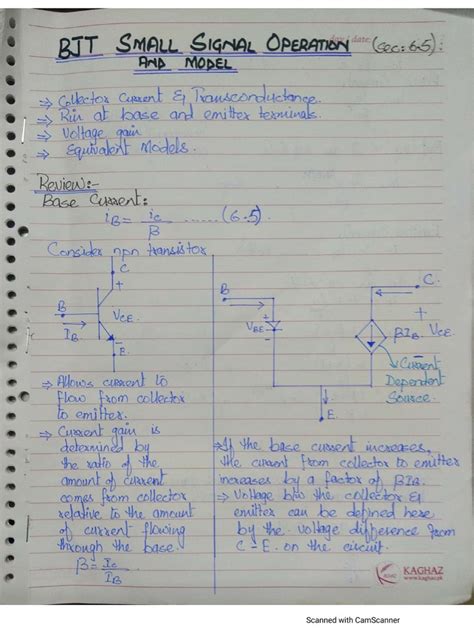 BJT SMALL SIGNAL OPERATION (sec: 6.5):
AND MODEL
⇒ Collector Current & Transconductance.
⇒ Rin at base and emitter terminals.
⇒ Voltage gain
⇒ Equivalent Models.
Review:-
Base Current:
iB = ic/β ...... (6.5)
Consider npn transistor
C
+
B
VCE
IB
-
E
B
+
VBE
-
C
+
βIB
VCE
-
Current
Dependent
Source.
E
⇒ Allows current to
flow from collector
to emitter.
⇒ Current gain is
determined by
the ratio of the
amount of current
comes from collector
relative to the amount
of current flowing
through the base.
β = Ic/IB
⇒ If the base current increases,
the current from collector to emitter
increases by a factor of βIB.
⇒ Voltage b/w the collector &
emitter can be defined here
by the voltage difference from
C-E. on the circuit.
KAGHAZ
www.kaghaz.pk
Scanned with CamScanner